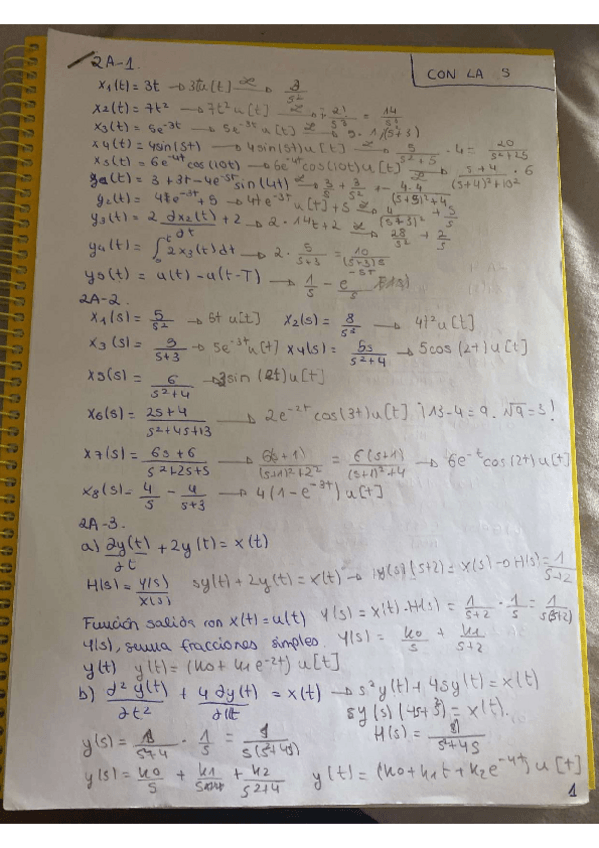 2A-1.
CON LA S
x1(t) = 3t → 3tu[t] ℒ→ 3/s²
x2(t) = 7t² → 7t² u[t] ℒ→ 7·2!/s³ = 14/s³
x3(t) = 5e^-3t → 5e^-3t u[t] ℒ→ 5·1/(s+3)
x4(t) = 4sin(5t) → 4sin(5t)u[t] ℒ→ 5/(s²+5) · 4 = 20/(s²+25)
x5(t) = 6e^-4t cos(10t) → 6e^-4t cos(10t) u[t] ℒ→ (s+4)/((s+4)²+10²) · 6
(t) = 3 + 3t - 4e^-5t sin(4t) ℒ→ 3/s + 3/s² + - 4·4/((s+5)²+4)
y2(t) = 4te^-3t + 5 → 4t e^-3t u[t] + 5 ℒ→ 4/(s+3)² + 5/s
y3(t) = 2 ∂x2(t)/∂t + 2 → 2·14t + 2 ℒ→ 28/s² + 2/s
y4(t) = ∫0^t 2x3(t)dt → 2 · 5/(s+3) = 10/((s+3)s)
y5(t) = u(t) - u(t-T) → 1/s - e^-sT/s
2A-2.
x1(s) = 5/s² → 5t u[t] x2(s) = 8/s³ → 4t² u[t]
x3(s) = 5/(s+3) → 5e^-3t u[t] x4(s) = 5s/(s²+4) → 5cos(2t) u[t]
x5(s) = 6/(s²+4) → 3sin(2t)u[t]
x6(s) = (2s+4)/(s²+4s+13) → 2e^-2t cos(3t) u[t] ¡13-4=9. √9=3!
x7(s) = (6s+6)/(s²+2s+5) → 6(s+1)/((s+1)²+2²) = 6(s+1)/((s+1)²+4) → 6e^-t cos(2t) u[t]
x8(s) = 4/s - 4/(s+3) → 4(1-e^-3t) u[t]
2A-3.
a) ∂y(t)/∂t + 2y(t) = x(t)
H(s) = Y(s)/X(s) sy(t) + 2y(t) = x(t) → y(s)(s+2) = x(s) → H(s) = 1/(s+2)
Función salida con x(t) = u(t) Y(s) = x(t)·H(s) = 1/(s+2) · 1/s = 1/(s(s+2))
Y(s), suma fracciones simples. Y(s) = k0/s + k1/(s+2)
y(t) y(t) = (k0 + k1 e^-2t) u[t]
b) ∂²y(t)/∂t² + 4∂y(t)/∂t = x(t) → s²y(t) + 4sy(t) = x(t)
H(s) = 1/(s²+4s)
y(s) = k0/s + +
y(t) = (k0 + k1t + k2e^-4t) u[t]
1